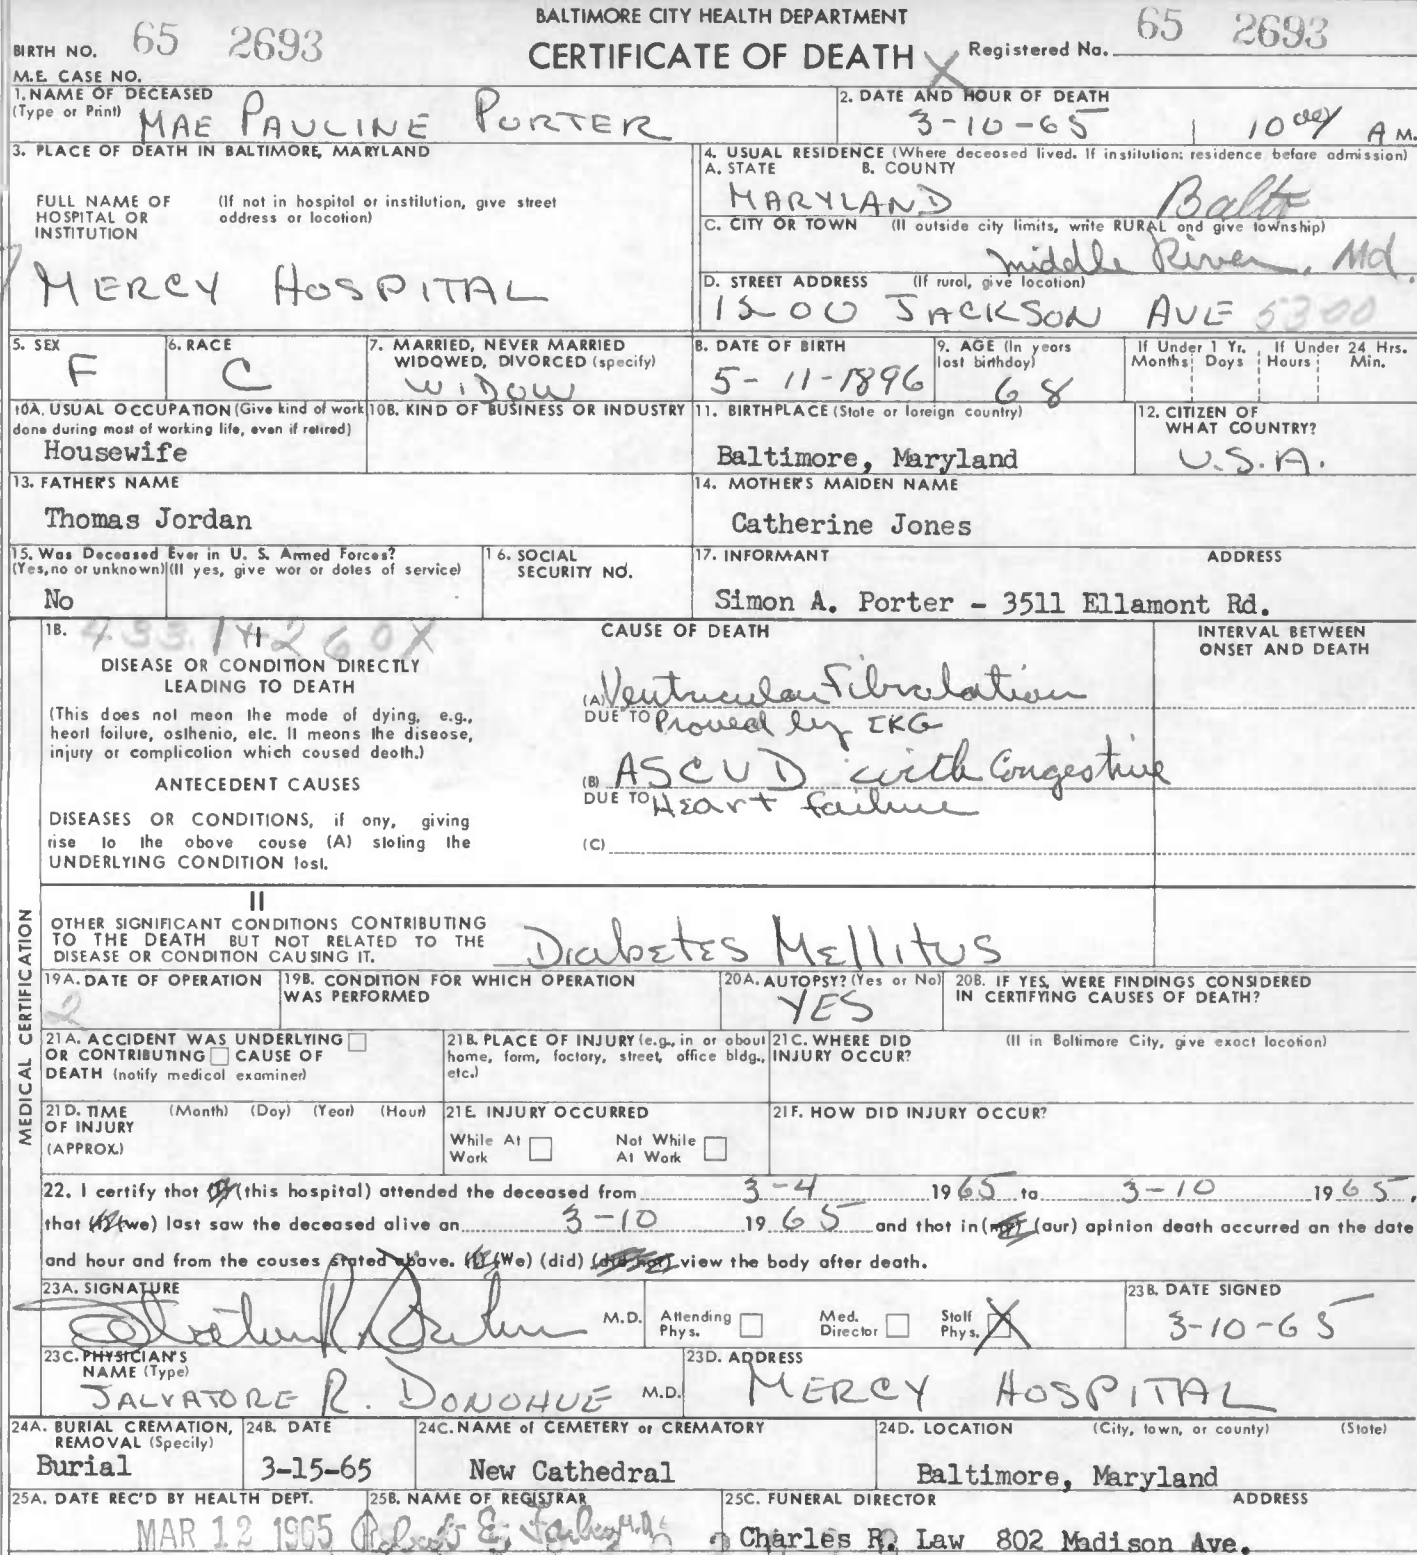 BALTIMORE CITY HEALTH DEPARTMENT
CERTIFICATE OF DEATH
BIRTH NO. 65 2693
Registered No. 65 2693
M.E. CASE NO.
1. NAME OF DECEASED
(Type or Print) MAE PAULINE PORTER
2. DATE AND HOUR OF DEATH
3-10-65 10 A M.
3. PLACE OF DEATH IN BALTIMORE, MARYLAND
FULL NAME OF HOSPITAL OR INSTITUTION
(If not in hospital or institution, give street address or location)
MERCY HOSPITAL
4. USUAL RESIDENCE (Where deceased lived. If institution: residence before admission)
A. STATE B. COUNTY
MARYLAND Balto
C. CITY OR TOWN (If outside city limits, write RURAL and give township)
Middle River, Md.
D. STREET ADDRESS (If rural, give location)
1200 JACKSON AVE 5300
5. SEX
F
6. RACE
C
7. MARRIED, NEVER MARRIED
WIDOWED, DIVORCED (specify)
WIDOW
8. DATE OF BIRTH
5-11-1896
9. AGE (In years last birthday)
68
If Under 1 Yr. If Under 24 Hrs.
Months Days Hours Min.
10A. USUAL OCCUPATION (Give kind of work done during most of working life, even if retired)
Housewife
10B. KIND OF BUSINESS OR INDUSTRY
11. BIRTHPLACE (State or foreign country)
Baltimore, Maryland
12. CITIZEN OF WHAT COUNTRY?
U.S.A.
13. FATHER'S NAME
Thomas Jordan
14. MOTHER'S MAIDEN NAME
Catherine Jones
15. Was Deceased Ever in U. S. Armed Forces?
(Yes, no or unknown) (If yes, give war or dates of service)
No
16. SOCIAL SECURITY NO.
17. INFORMANT ADDRESS
Simon A. Porter - 3511 Ellamont Rd.
18. I
CAUSE OF DEATH
INTERVAL BETWEEN ONSET AND DEATH
DISEASE OR CONDITION DIRECTLY
LEADING TO DEATH
(This does not mean the mode of dying, e.g.,
heart failure, asthenia, etc. It means the disease,
injury or complication which caused death.)
ANTECEDENT CAUSES
DISEASES OR CONDITIONS, if any, giving
rise to the above cause (A) stating the
UNDERLYING CONDITION last.
(A) Ventricular Fibrolation
DUE TO Proved by EKG
(B) ASCVD with Congestive
DUE TO Heart failure
(C)
II
OTHER SIGNIFICANT CONDITIONS CONTRIBUTING
TO THE DEATH BUT NOT RELATED TO THE
DISEASE OR CONDITION CAUSING IT.
Diabetes Mellitus
MEDICAL CERTIFICATION
19A. DATE OF OPERATION
2
19B. CONDITION FOR WHICH OPERATION WAS PERFORMED
20A. AUTOPSY? (Yes or No)
YES
20B. IF YES, WERE FINDINGS CONSIDERED
IN CERTIFYING CAUSES OF DEATH?
21A. ACCIDENT WAS UNDERLYING
OR CONTRIBUTING CAUSE OF
DEATH (notify medical examiner)
21B. PLACE OF INJURY (e.g., in or about
home, farm, factory, street, office bldg.,
etc.)
21C. WHERE DID INJURY OCCUR?
(If in Baltimore City, give exact location)
21D. TIME OF INJURY (APPROX.)
(Month) (Day) (Year) (Hour)
21E. INJURY OCCURRED
While At Work Not While At Work
21F. HOW DID INJURY OCCUR?
22. I certify that (I) (this hospital) attended the deceased from 3-4 1965 to 3-10 1965,
that (I) (we) last saw the deceased alive on 3-10 1965 and that in (my) (our) opinion death occurred on the date
and hour and from the causes stated above. (I) (We) (did) (did not) view the body after death.
23A. SIGNATURE
M.D.
Attending Phys. Med. Director Staff Phys.
23B. DATE SIGNED
3-10-65
23C. PHYSICIAN'S NAME (Type)
SALVATORE R. DONOHUE M.D.
23D. ADDRESS
MERCY HOSPITAL
24A. BURIAL CREMATION, REMOVAL (Specify)
Burial
24B. DATE
3-15-65
24C. NAME of CEMETERY or CREMATORY
New Cathedral
24D. LOCATION (City, town, or county) (State)
Baltimore, Maryland
25A. DATE REC'D BY HEALTH DEPT.
MAR 12 1965
25B. NAME OF REGISTRAR
Robert E. Farber, M.D.
25C. FUNERAL DIRECTOR ADDRESS
Charles R. Law 802 Madison Ave.